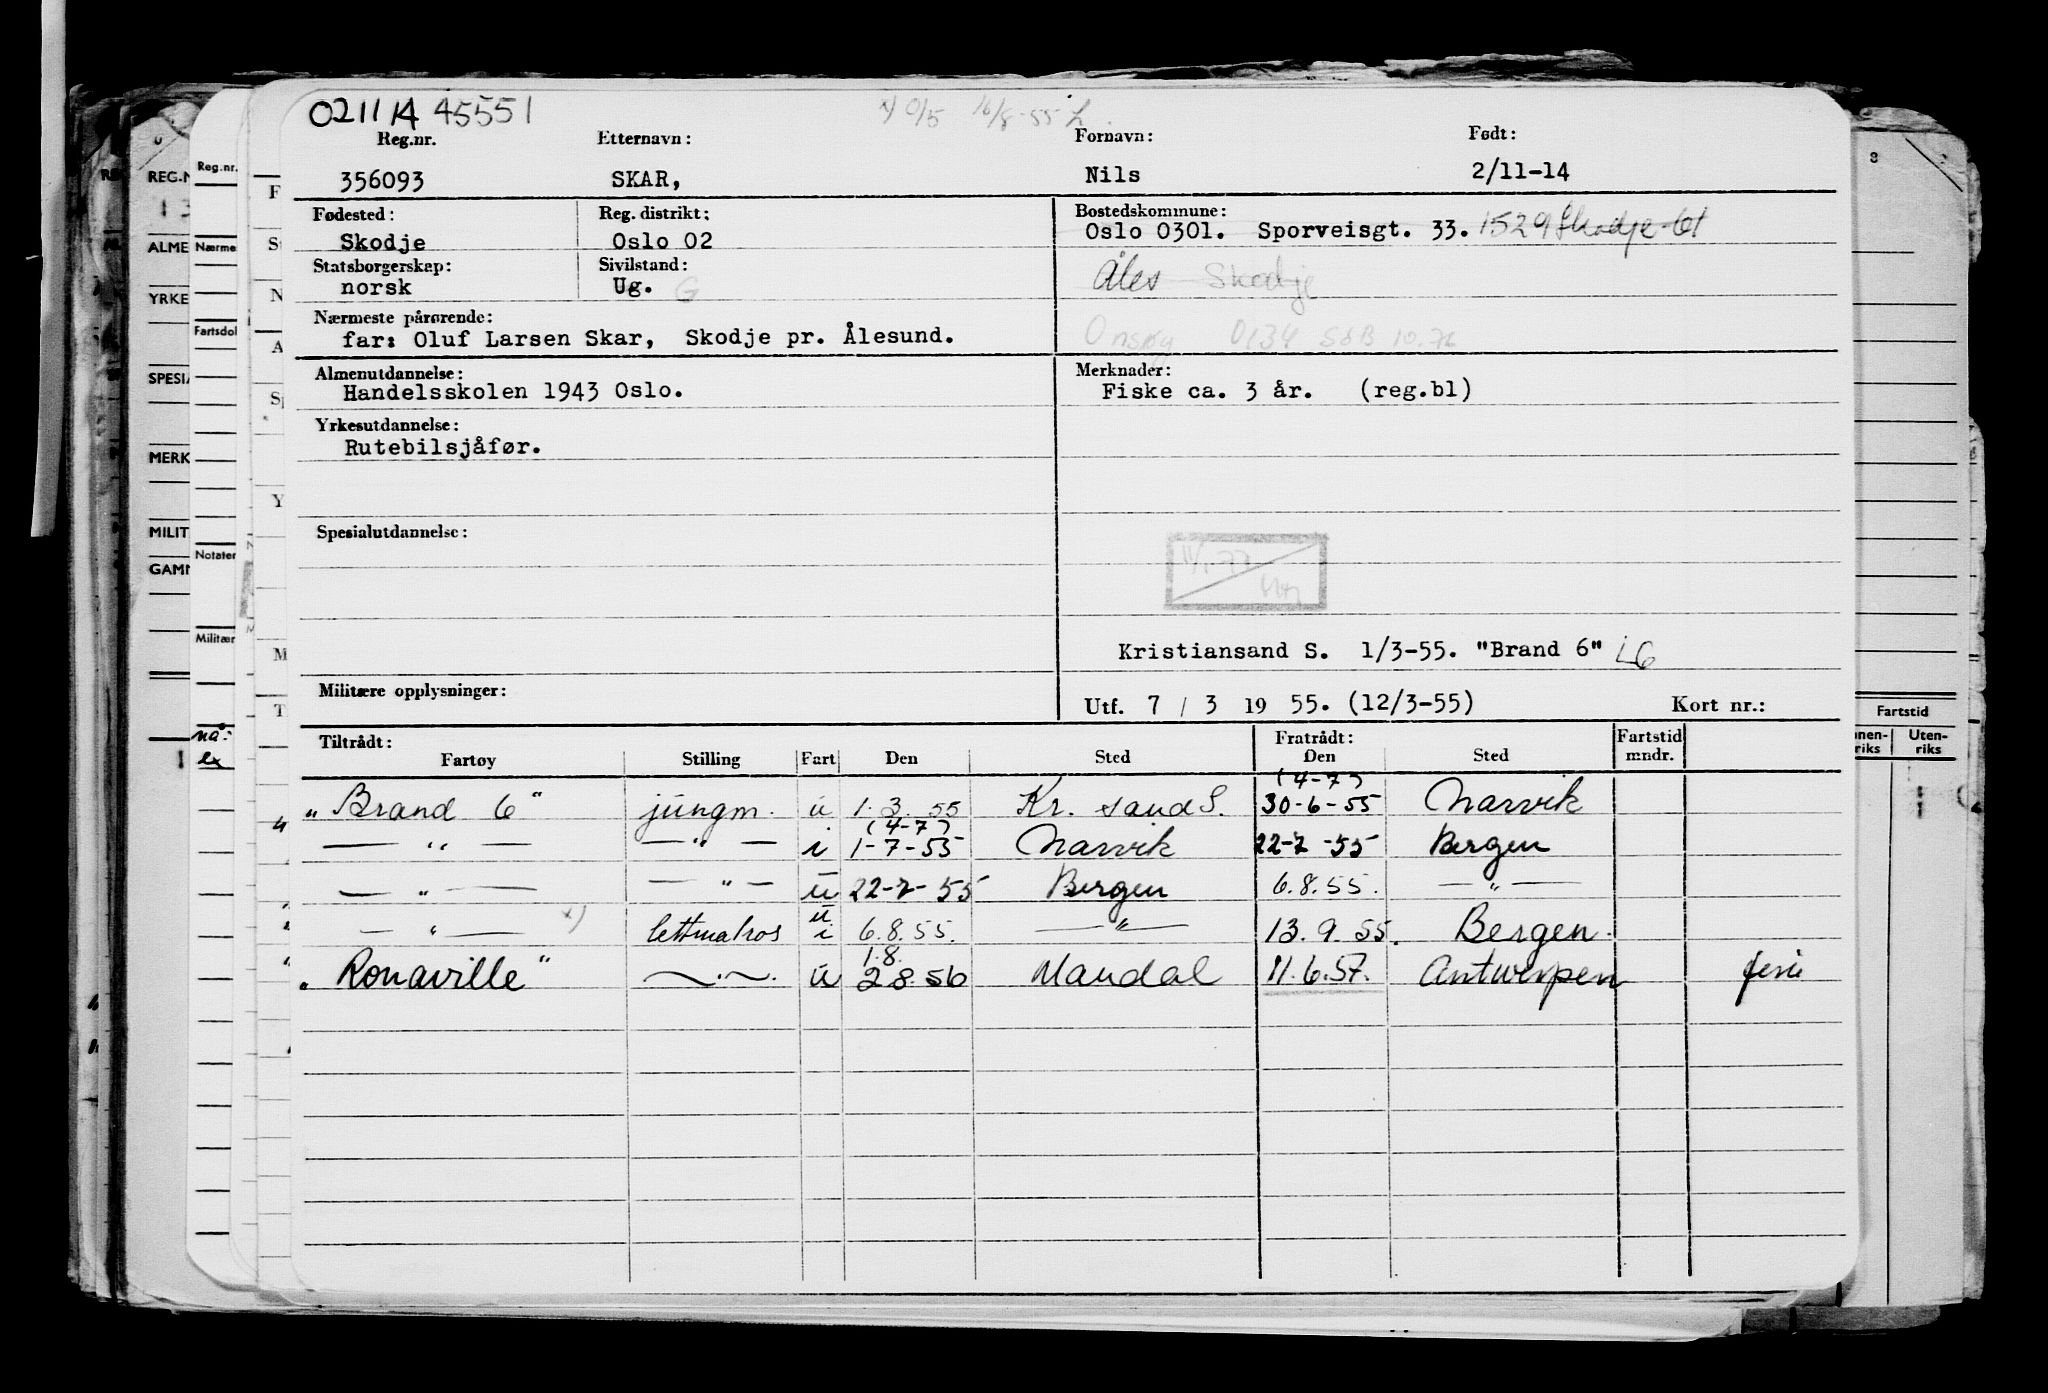 021114 45551
x) O/S 16/8-55 L.
Reg.nr. Etternavn: Fornavn: Født:
356093 SKAR, Nils 2/11-14
Fødested: Reg. distrikt: Bostedskommune:
Skodje Oslo 02 Oslo 0301. Sporveisgt. 33. 1529 Skodje-61
Statsborgerskap: Sivilstand:
norsk Ug. G Åles Skodje
Nærmeste pårørende:
far: Oluf Larsen Skar, Skodje pr. Ålesund. Onsøy 0134 SdB 10.76
Almenutdannelse: Merknader:
Handelsskolen 1943 Oslo. Fiske ca. 3 år. (reg.bl)
Yrkesutdannelse:
Rutebilsjåfør.
Spesialutdannelse:
Kristiansand S. 1/3-55. "Brand 6" LG
Militære opplysninger: Utf. 7 / 3 19 55. (12/3-55) Kort nr.:
Tiltrådt: Fratrådt: Fartstid
Fartøy Stilling Fart Den Sted Den Sted mndr.
(4-7)
"Brand 6" jungm. u 1.3.55 Kr. sand S. 30-6-55 Narvik
(4-7)
— " — — " — i 1-7-55 Narvik 22-7-55 Bergen
— " — — " — u 22-7-55 Bergen 6.8.55. — " —
u
— " — x) lettmatros i 6.8.55. — " — 13.9.55. Bergen.
1.8.
"Ronaville" — " — u 2.8.56 Mandal 11.6.57. Antwerpen ferie
Reg.nr.
Nærme
Fartsdol
Notater
Militær
REG.N
ALME
YRKE
SPESIA
MERK
MILIT
GAMN
Fartstid
Uten-
riks